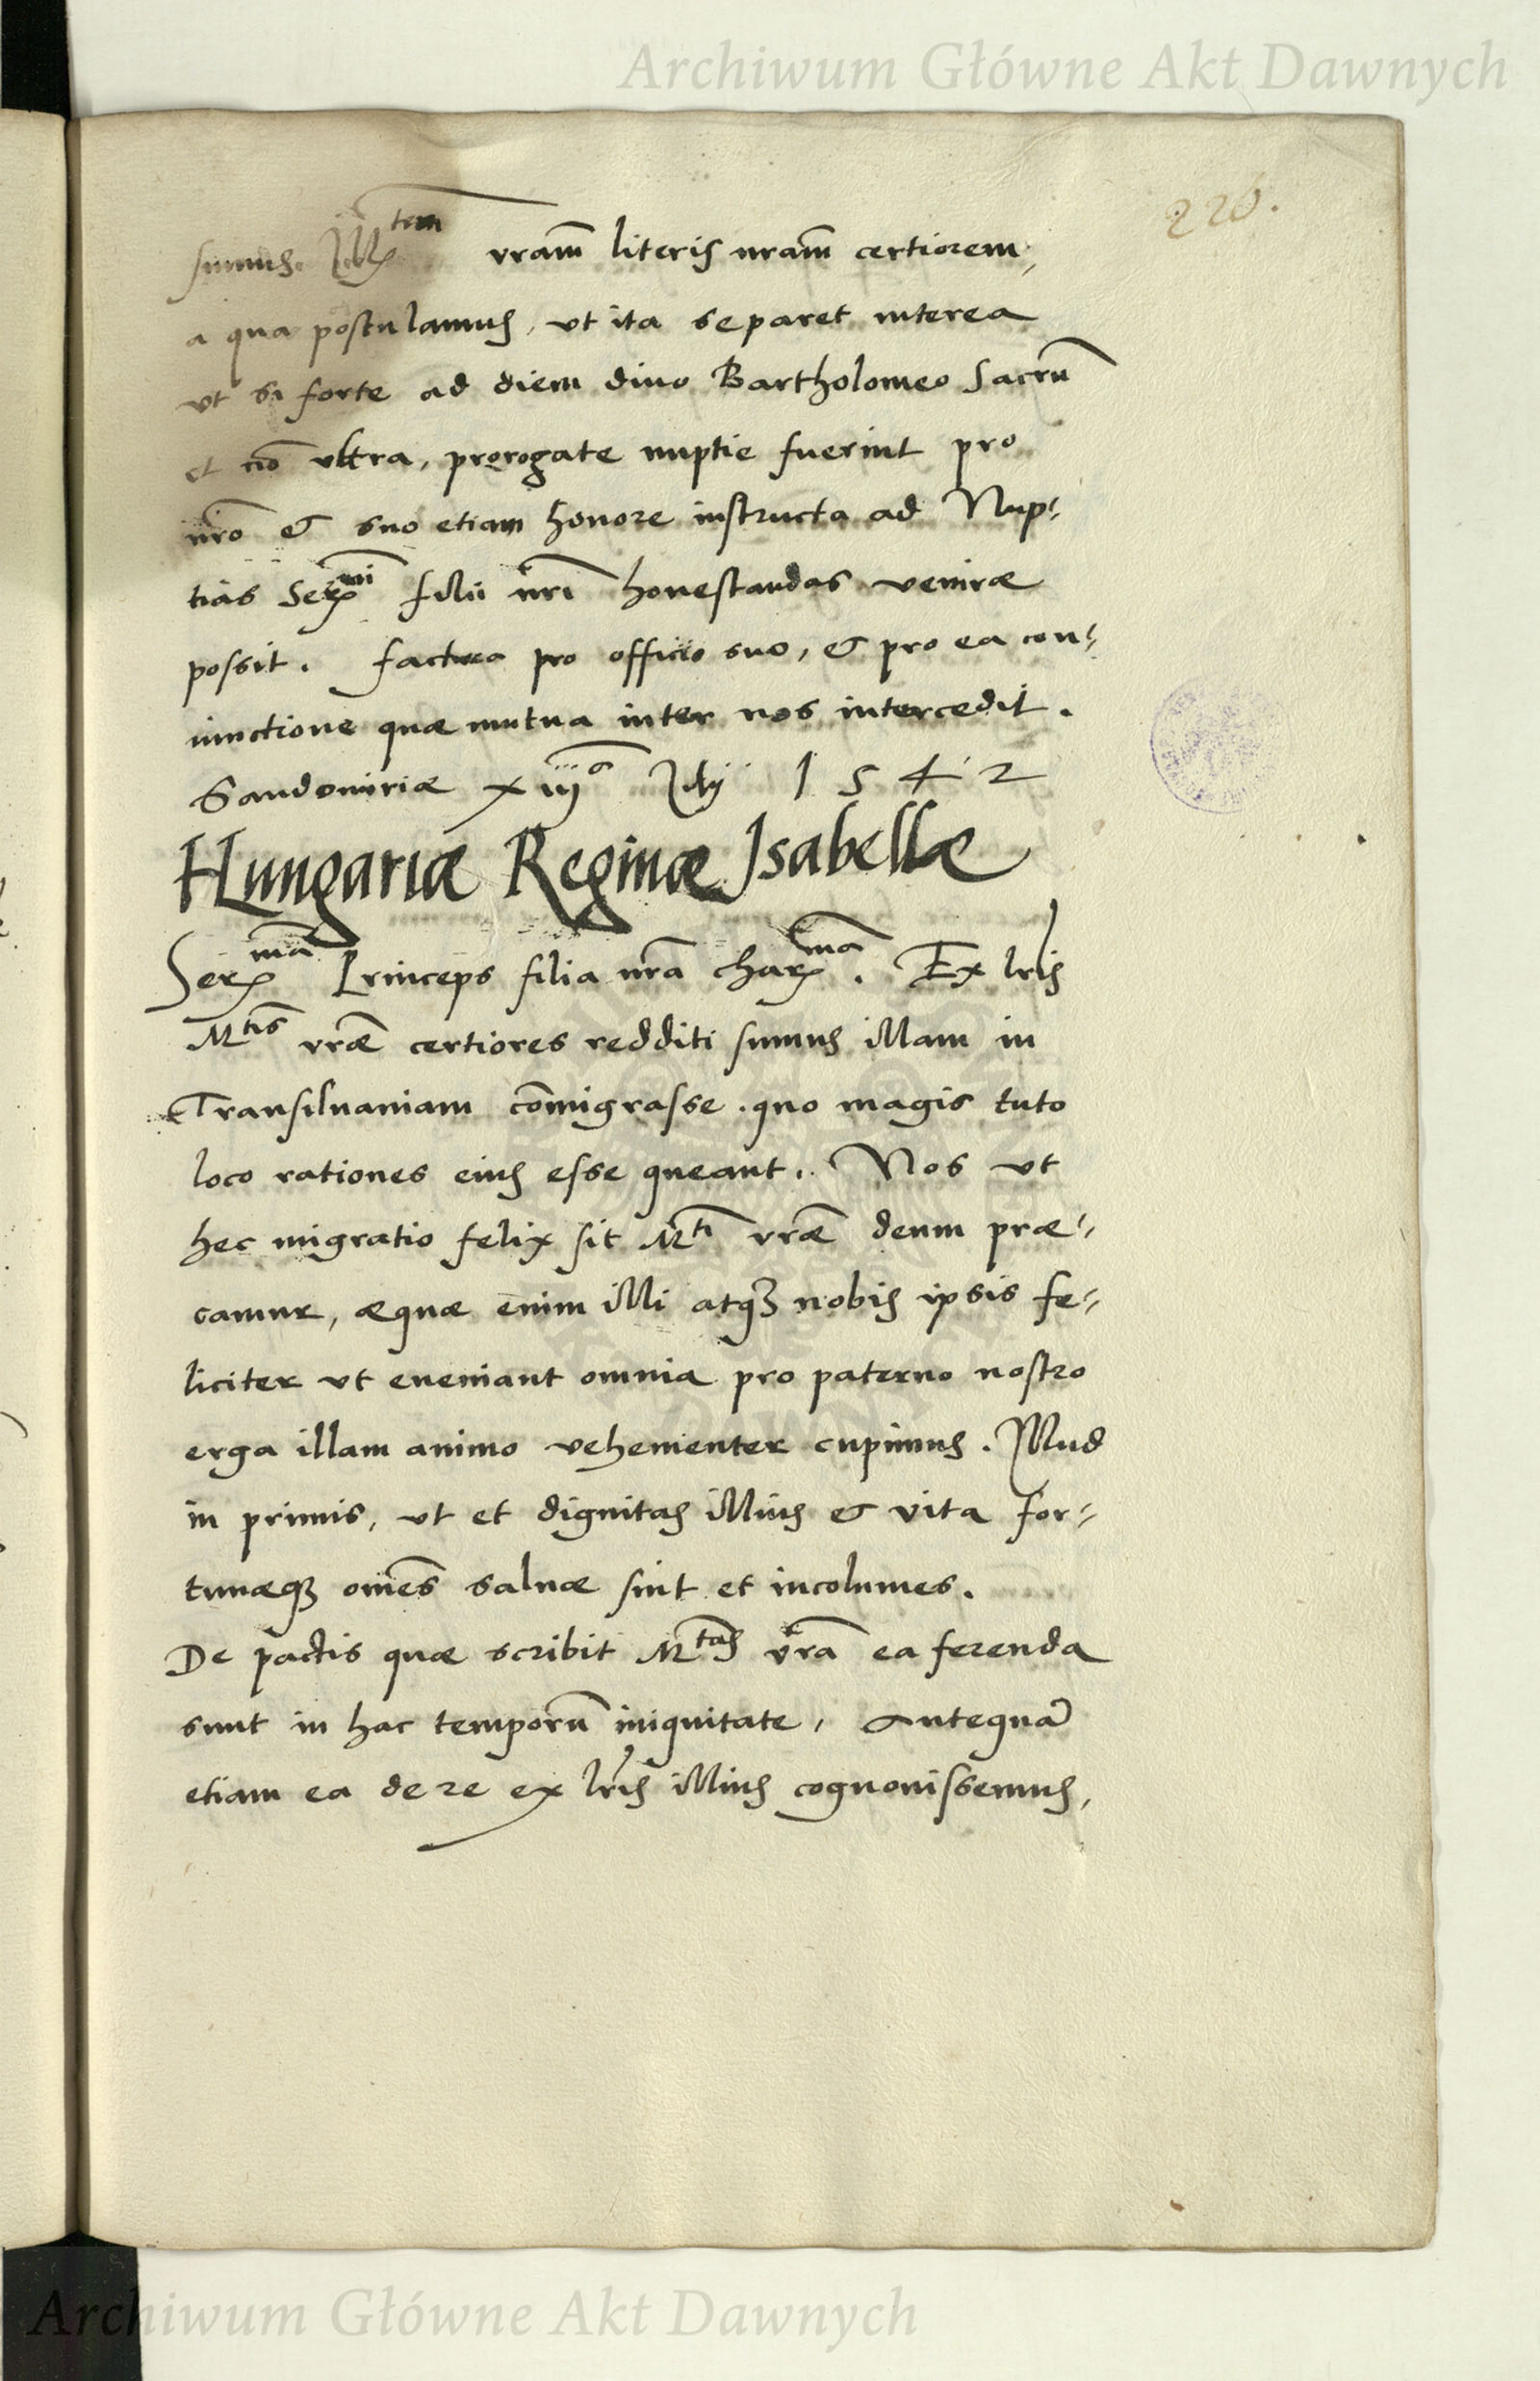 Archiwum Główne Akt Dawnych
220.
sumus. Ill^tem vram literis nram certiorem,
a qua postulamus, vt ita se paret interea
vt si forte ad diem diuo Bartholomeo Sacrũ
et nõ vltra, prorogate nuptie fuerint pro
nrõ & suo etiam honore instructa ad Nup-
tias Ser^mi filii nri honestandas venire
possit. factura pro officio suo, & pro ea con-
iunctione quæ mutua inter nos intercedit.
Sandomiriæ xiij^a Julij 1542
Hungariæ Reginæ Isabellæ
Ser^ma Princeps filia nra char^ma. Ex lris
M^tis vræ certiores redditi sumus illam in
Transiluaniam cõmigrasse. quo magis tuto
loco rationes eius esse queant. Nos vt
hec migratio felix sit M^ti vræ deum præ-
camur, æquæ enim illi atq3 nobis ipsis fe-
liciter vt eueniant omnia pro paterno nostro
erga illam animo vehementer cupimus. Illud
in primis, vt et dignitas illius & vita for-
tunæq3 omẽs saluæ sint et incolumes.
De pactis quæ scribit M^tas vra ea ferenda
sunt in hac temporũ iniquitate, Antequã
etiam ea de re ex lris illius cognouissemus,
Archiwum Główne Akt Dawnych